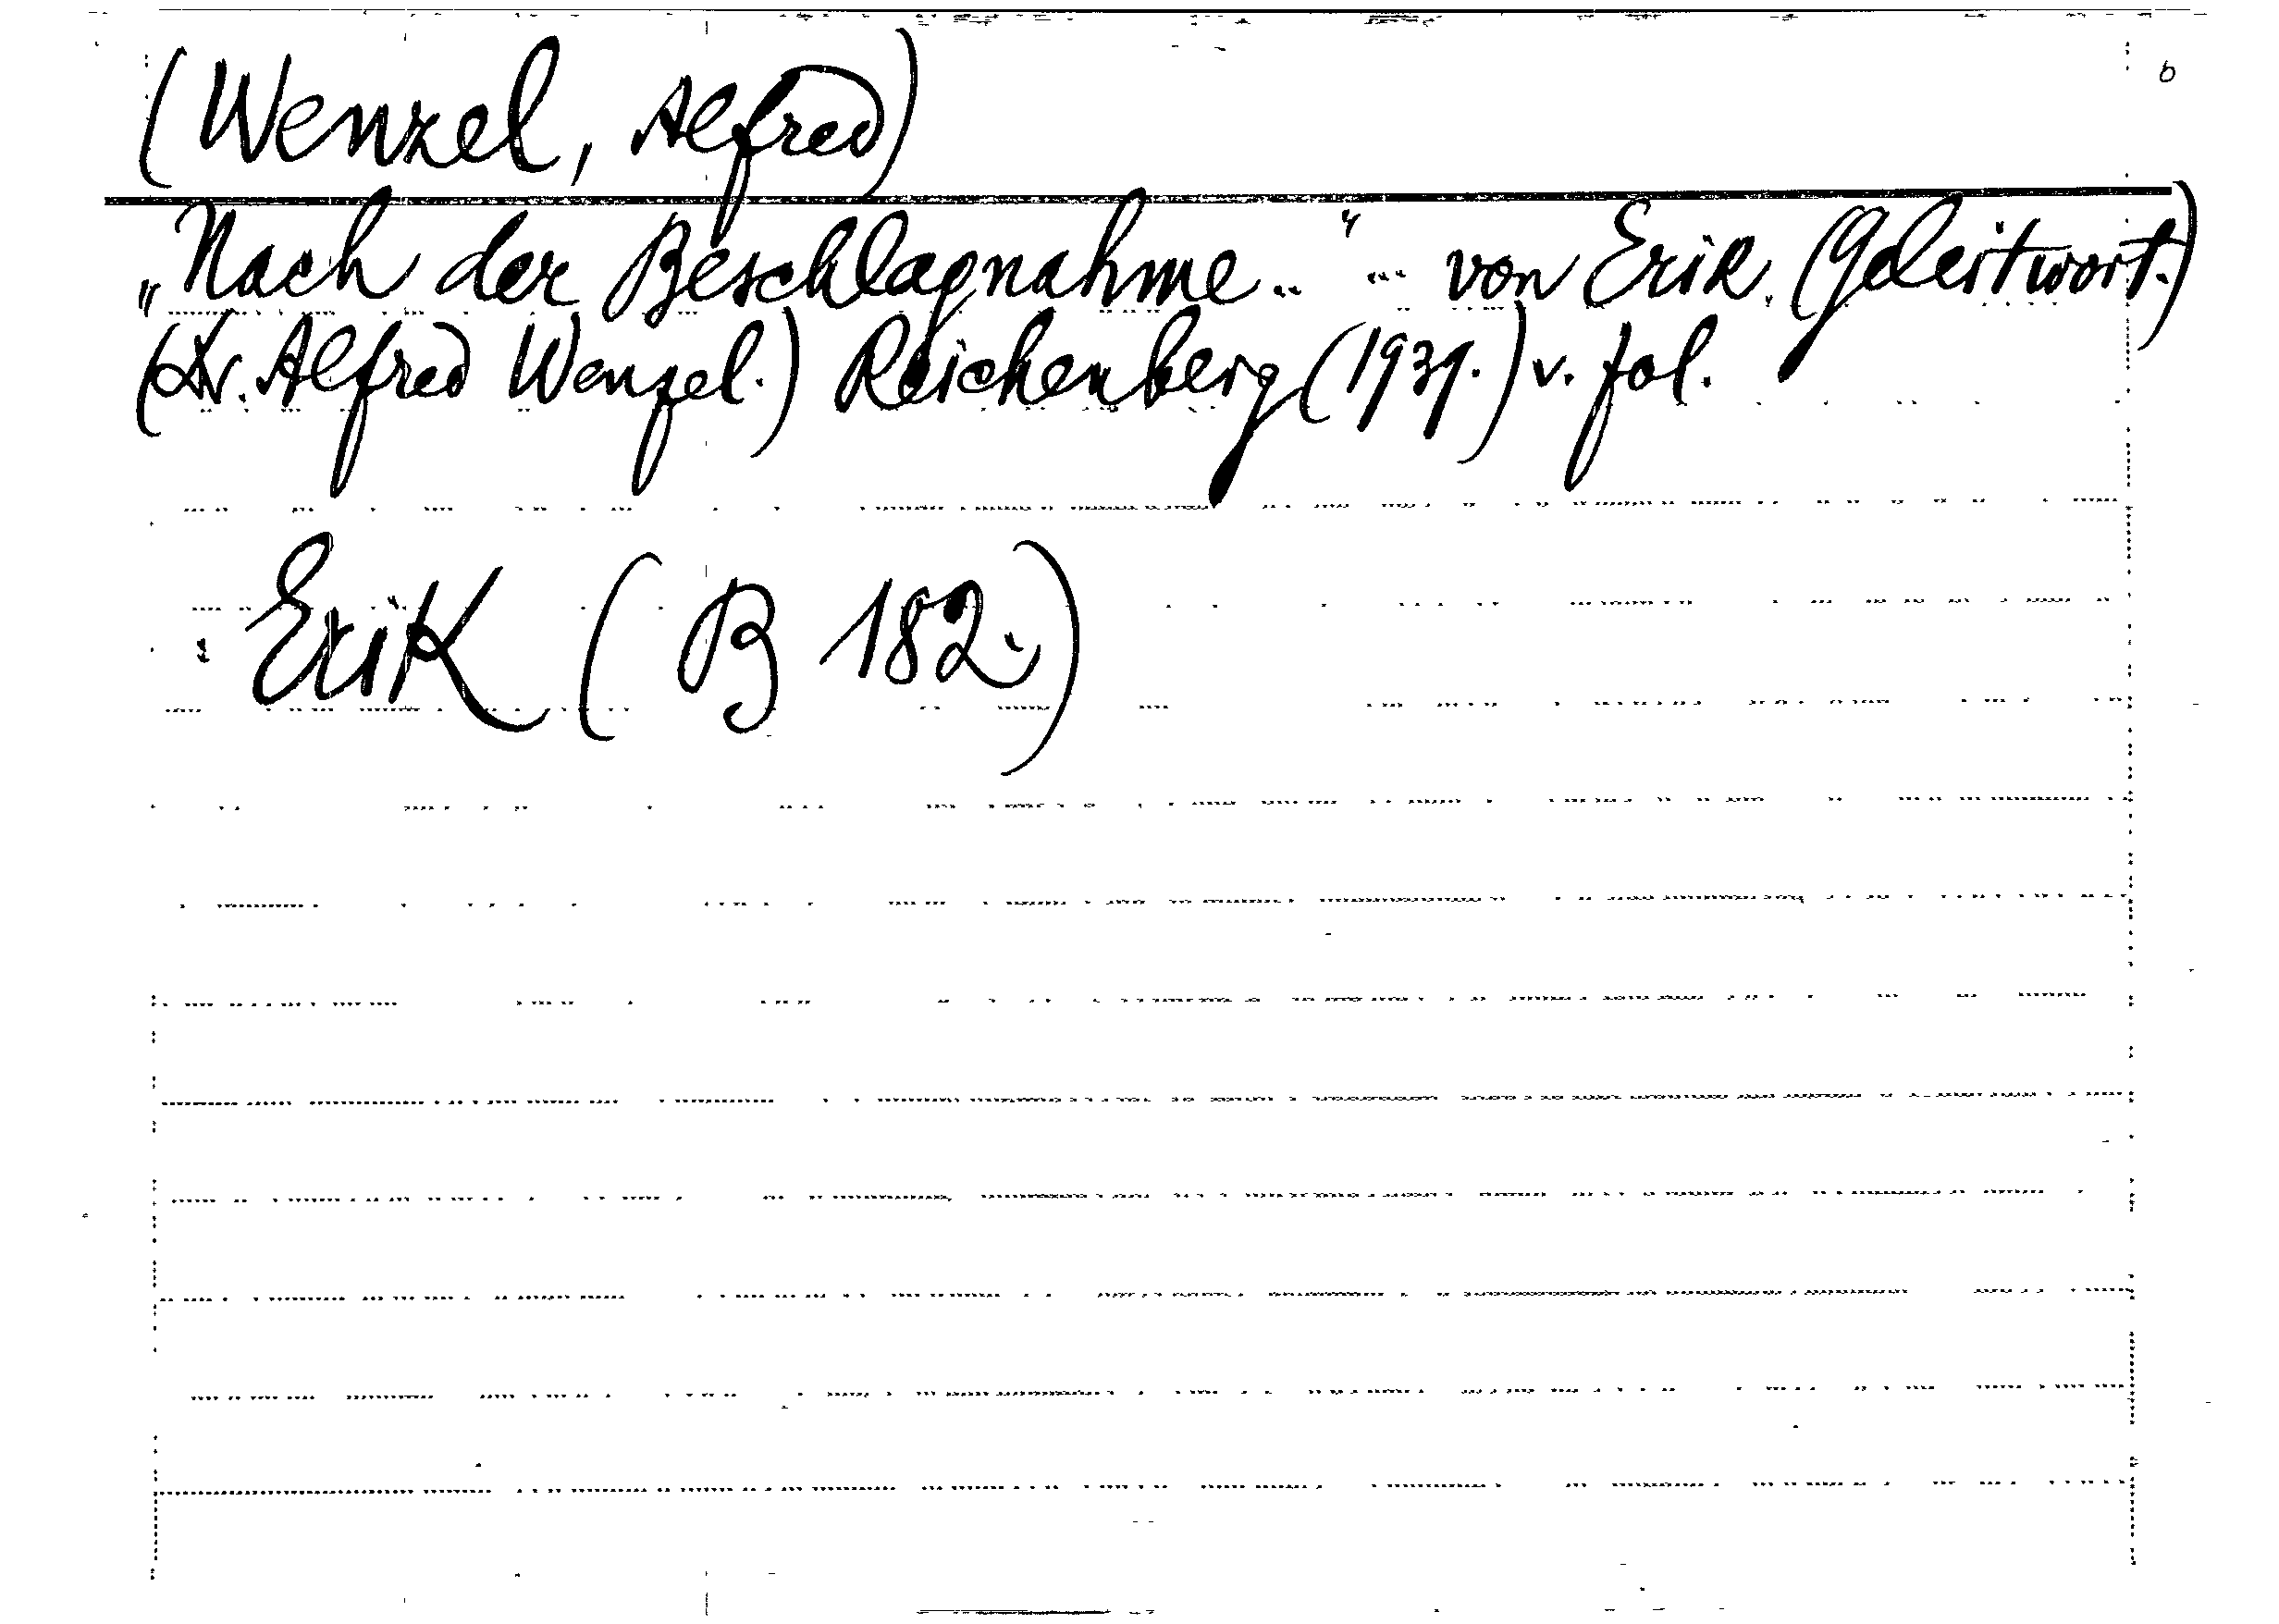 b
(Wenzel, Alfred)
„Nach der Beschlagnahme.." ... von Erik. (Geleitwort.)
(Dr. Alfred Wenzel.) Reichenberg (1939.) v. fol.
: Erik (B 182.)